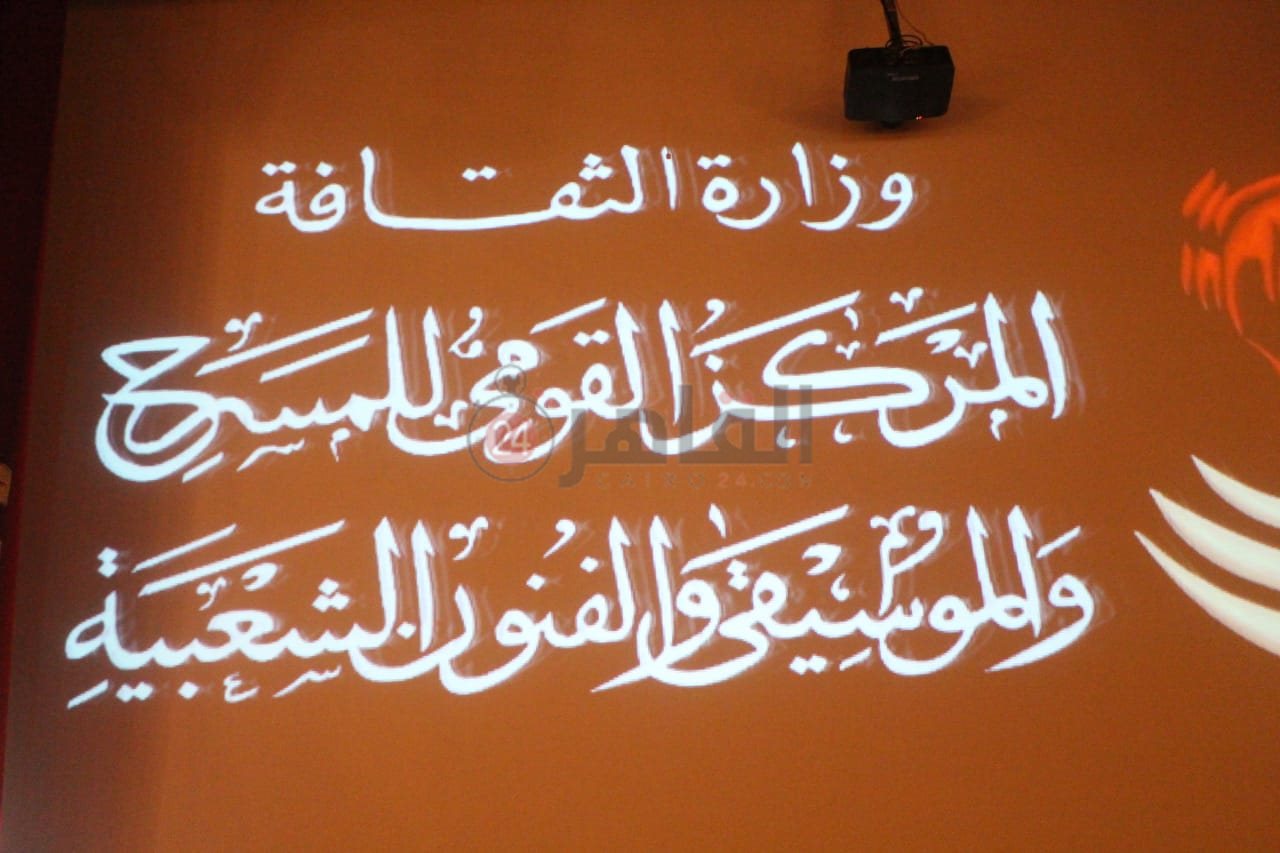 وزارة الثقافة
المركز القومى للمسرح
والموسيقى والفنون الشعبية
القاهرة 24
CAIRO 24.COM